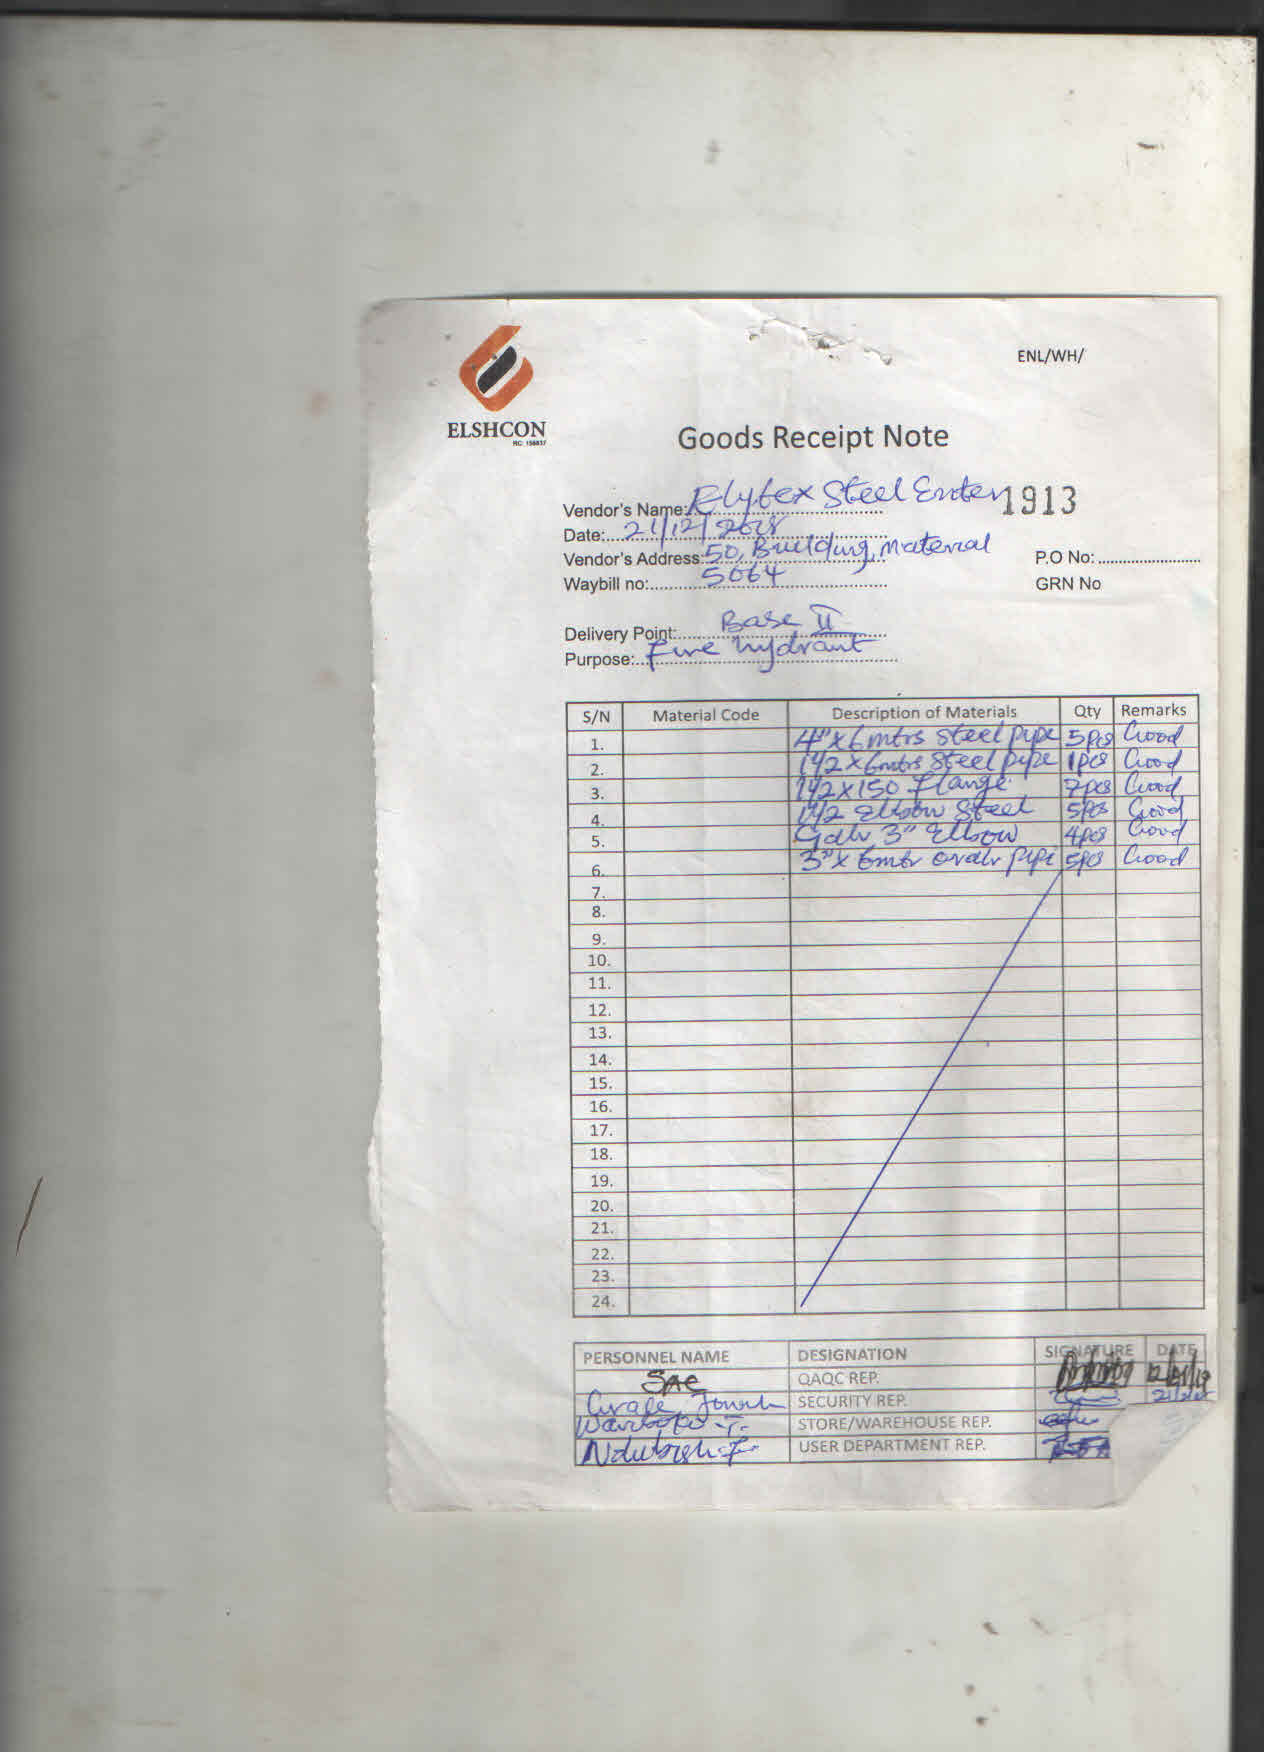 ENL/WH/
ELSHCON
RC: 156837
Goods Receipt Note
Vendor's Name: Elytex Steel Enter 1913
Date: 21/12/2018
Vendor's Address: 50, Building material
P.O No:
Waybill no: 5064
GRN No
Delivery Point: Base II
Purpose: Fire hydrant
S/N Material Code Description of Materials Qty Remarks
1. 4" x 6mtrs Steel pipe 5pcs Good
2. 1 1/2 x 6mtrs Steel pipe 1pcs Good
3. 1 1/2 x 150 flange 7pcs Good
4. 1 1/2 Elbow Steel 5pcs Good
5. Galv 3" Elbow 4pcs Good
6. 3" x 6mtr pipe 5pcs Good
7.
8.
9.
10.
11.
12.
13.
14.
15.
16.
17.
18.
19.
20.
21.
22.
23.
24.
PERSONNEL NAME DESIGNATION SIGNATURE DATE
SAC QAQC REP.
SECURITY REP.
STORE/WAREHOUSE REP.
USER DEPARTMENT REP.